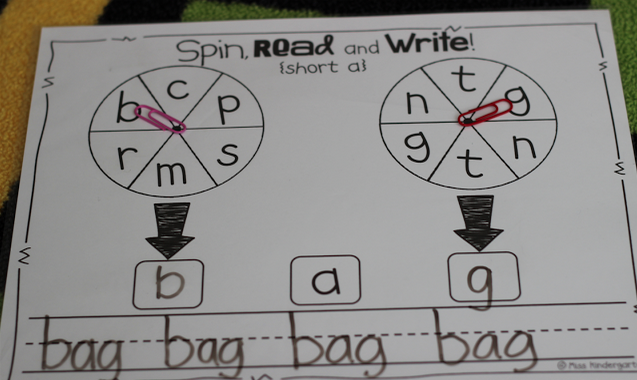 Spin, Read and Write!
{short a}
b c p
r m s
n t g
g t n
b a g
bag bag bag bag
© Miss Kindergart